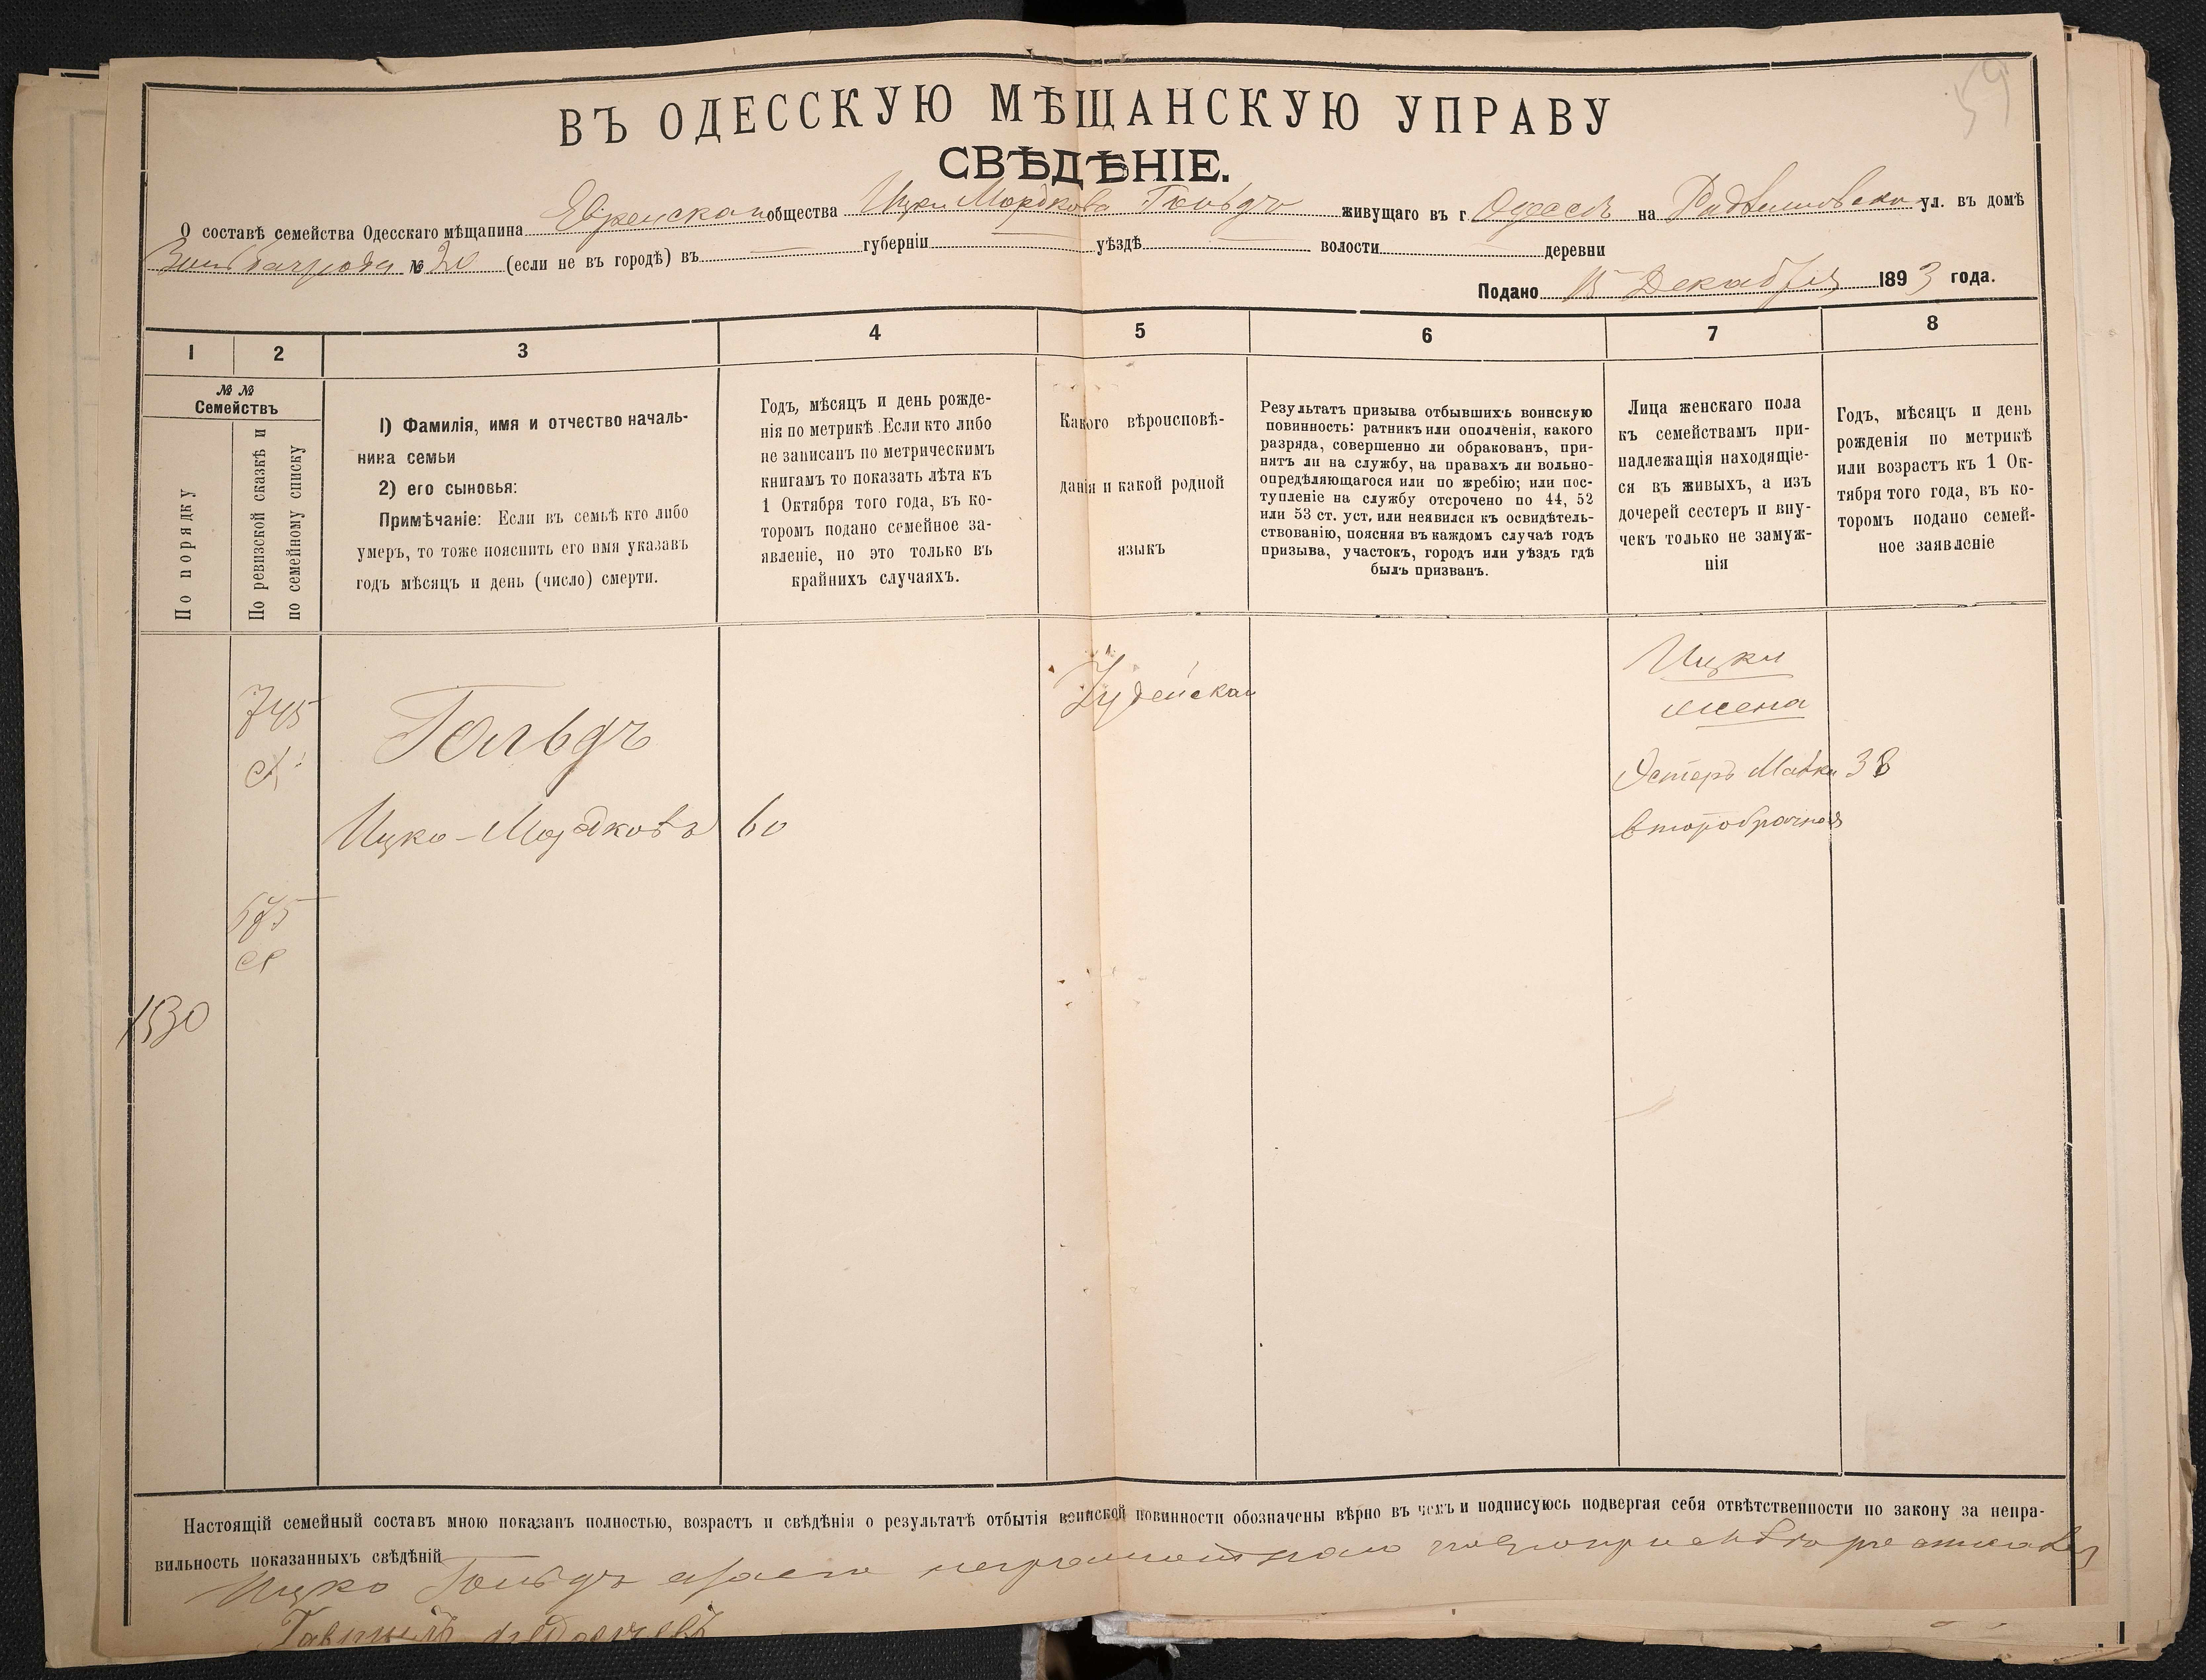 59
ВЪ ОДЕССКУЮ МѢЩАНСКУЮ УПРАВУ
СВѢДѢНІЕ.
О составѣ семейства Одесскаго мѣщанина Еврейскаго общества Ицки Мордкова Гольдъ живущаго въ г Одессѣ на ул. въ домѣ
№ 20 (если не въ городѣ) въ губерніи уѣздѣ волости деревни
Подано 15 Декабря 1893 года.
1 2 3 4 5 6 7 8
№ №
Семействъ
По порядку
По ревизской сказкѣ и
по семейному списку
1) Фамилія, имя и отчество началь-
ника семьи
2) его сыновья:
Примѣчаніе: Если въ семьѣ кто либо
умеръ, то тоже пояснить его имя указавъ
годъ мѣсяцъ и день (число) смерти.
Годъ, мѣсяцъ и день рожде-
нія по метрикѣ. Если кто либо
не записанъ по метрическимъ
книгамъ то показать лѣта къ
1 Октября того года, въ ко-
торомъ подано семейное за-
явленіе, но это только въ
крайнихъ случаяхъ.
Какого вѣроисповѣ-
данія и какой родной
языкъ
Результатъ призыва отбывшихъ воинскую
повинность: ратникъ или ополченія, какого
разряда, совершенно ли обракованъ, при-
нятъ ли на службу, на правахъ ли вольно-
опредѣляющагося или по жребію; или пос-
тупленіе на службу отсрочено по 44, 52
или 53 ст. уст. или неявился къ освидѣтель-
ствованію, поясняя въ каждомъ случаѣ годъ
призыва, участокъ, городъ или уѣздъ гдѣ
былъ призванъ.
Лица женскаго пола
къ семействамъ при-
надлежащія находящіе-
ся въ живыхъ, а изъ
дочерей сестеръ и вну-
чекъ только не замуж-
нія
Годъ, мѣсяцъ и день
рожденія по метрикѣ
или возрастъ къ 1 Ок-
тября того года, въ ко-
торомъ подано семей-
ное заявленіе
745
Гольдъ
Іудейская
Ицки
жена
Эстеръ 38
Ицко-Мордковъ 60
второбрачная
575
1530
Настоящій семейный составъ мною показанъ полностью, возрастъ и свѣдѣнія о результатѣ отбытія воинской повинности обозначены вѣрно въ чемъ и подписуюсь подвергая себя отвѣтственности по закону за непра-
вильность показанныхъ свѣдѣній
Ицко Гольдъ